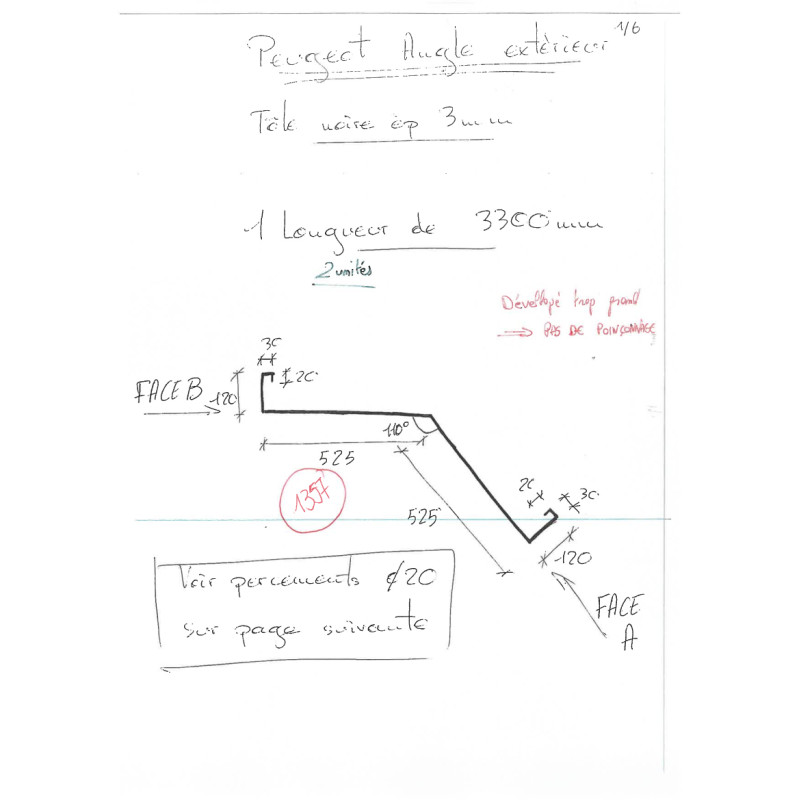 1/6
Peugeot Angle extérieur
Tôle noire ép 3mm
1 Longueur de 3300mm
2 unités
Dévéloppé trop grand
PAS DE POINÇONNAGE
30
20
FACE B
120
110°
525
1357
20
30
525
120
Voir percements ø20
sur page suivante
FACE
A